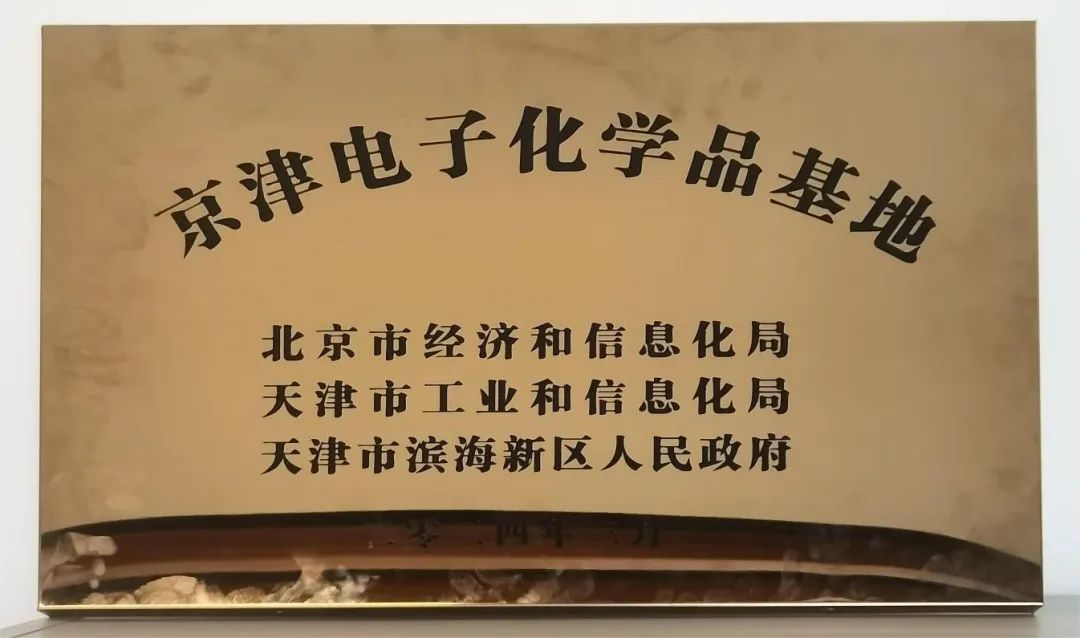 京津电子化学品基地
北京市经济和信息化局
天津市工业和信息化局
天津市滨海新区人民政府
二零二四年 月